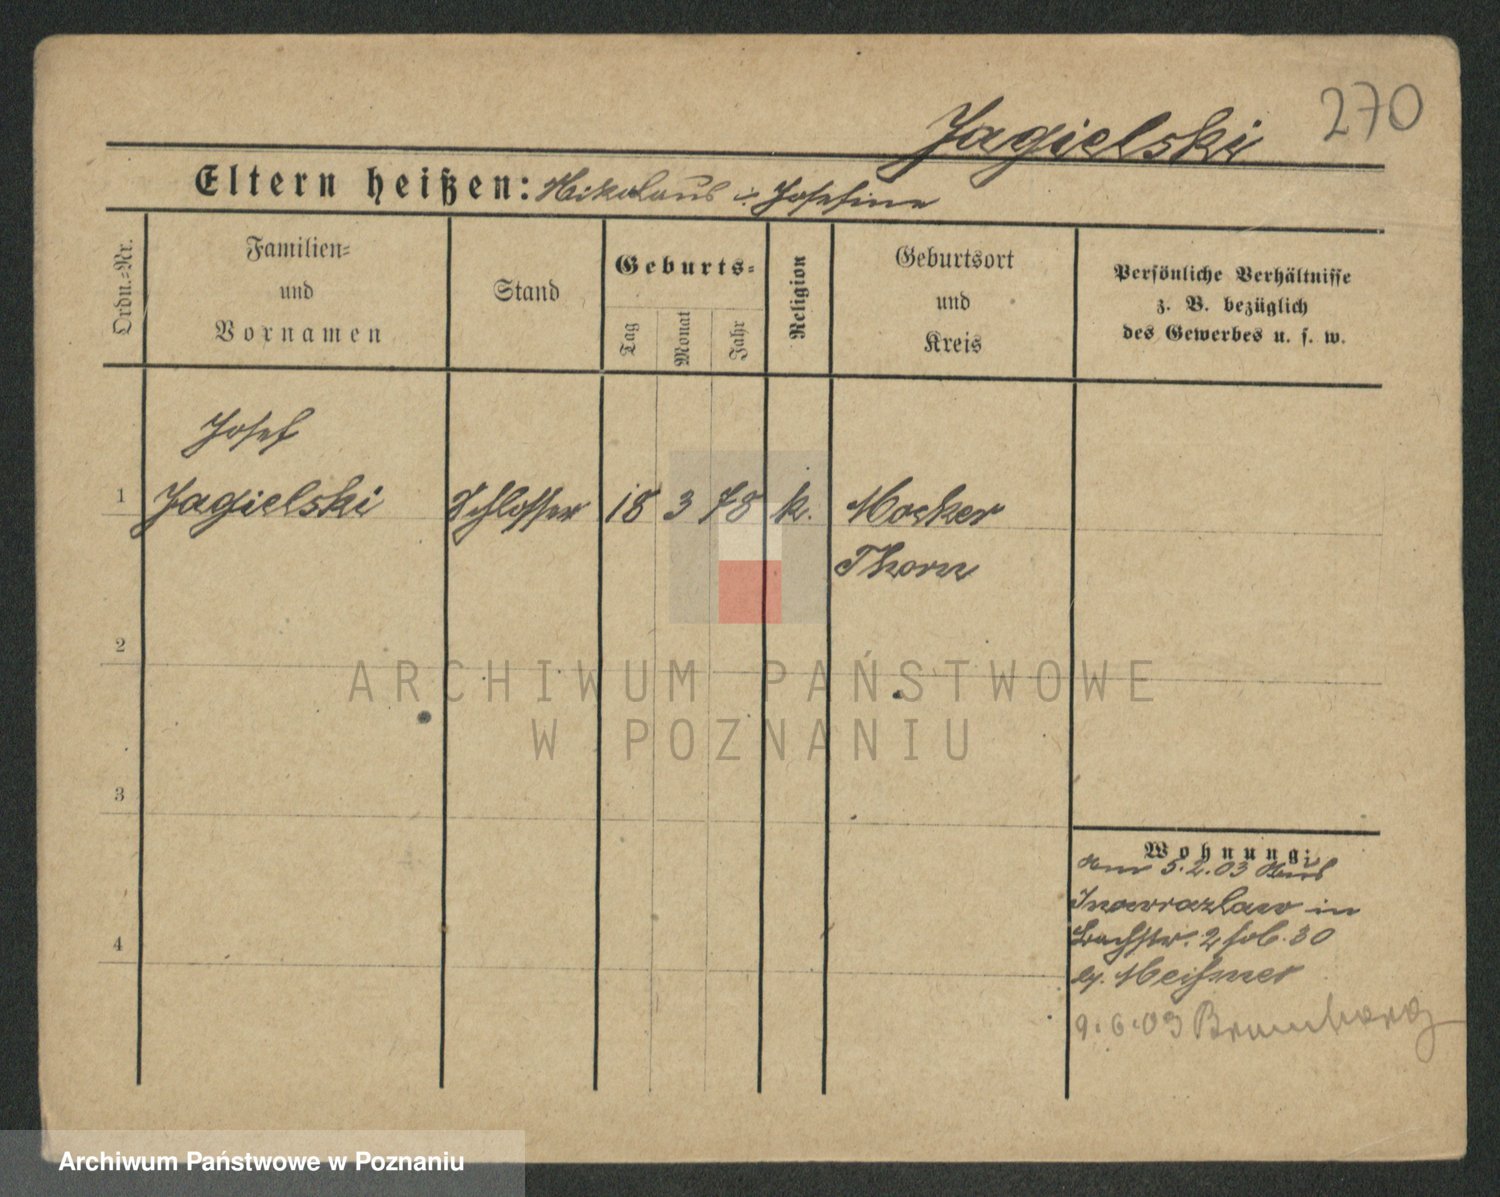 270
Jagielski
Eltern heißen: Nikolaus u. Josefine
Ordn.=Nr.
Familien=
und
Vornamen
Stand
Geburts=
Tag
Monat
Jahr
Religion
Geburtsort
und
Kreis
Persönliche Verhältnisse
z. B. bezüglich
des Gewerbes u. s. w.
Josef
1 Jagielski Schlosser 18 3 78 k. Mocker
Thorn
2
3
4
ARCHIWUM PAŃSTWOWE
W POZNANIU
Wohnung:
5.2.03 aus
Inowrazlaw in
Bachstr. 2
Meißner
9.6.03 Bromberg
Archiwum Państwowe w Poznaniu